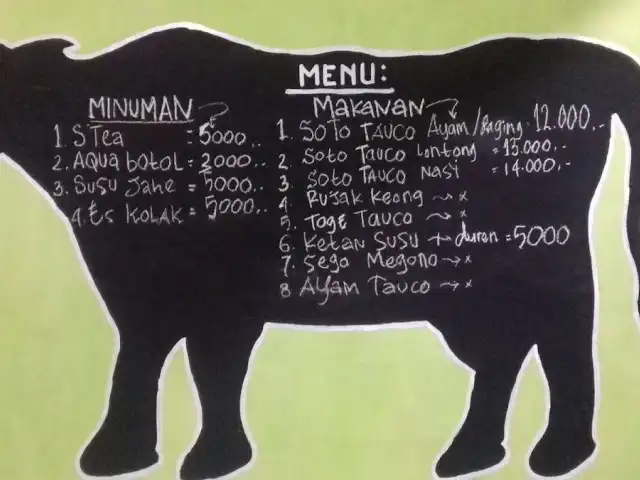 MENU:
MINUMAN
1. S Tea = 5000,..
2. AQUA BOTOL = 2000...
3. SUSU JAHE = 5000...
4. Es KOLAK = 5000,..
MAKANAN
1. SOTO TAUCO Ayam/Daging 12.000,-
2. Soto TAUCO Lontong = 13.000,-
3. SOTO TAUCO NASI = 14.000,-
4. RUJAK Keong → x
5. TOGE TAUCO → x
6. Ketan SUSU + duren = 5000
7. Sego Megono → x
8 AYAM TAUCO → x